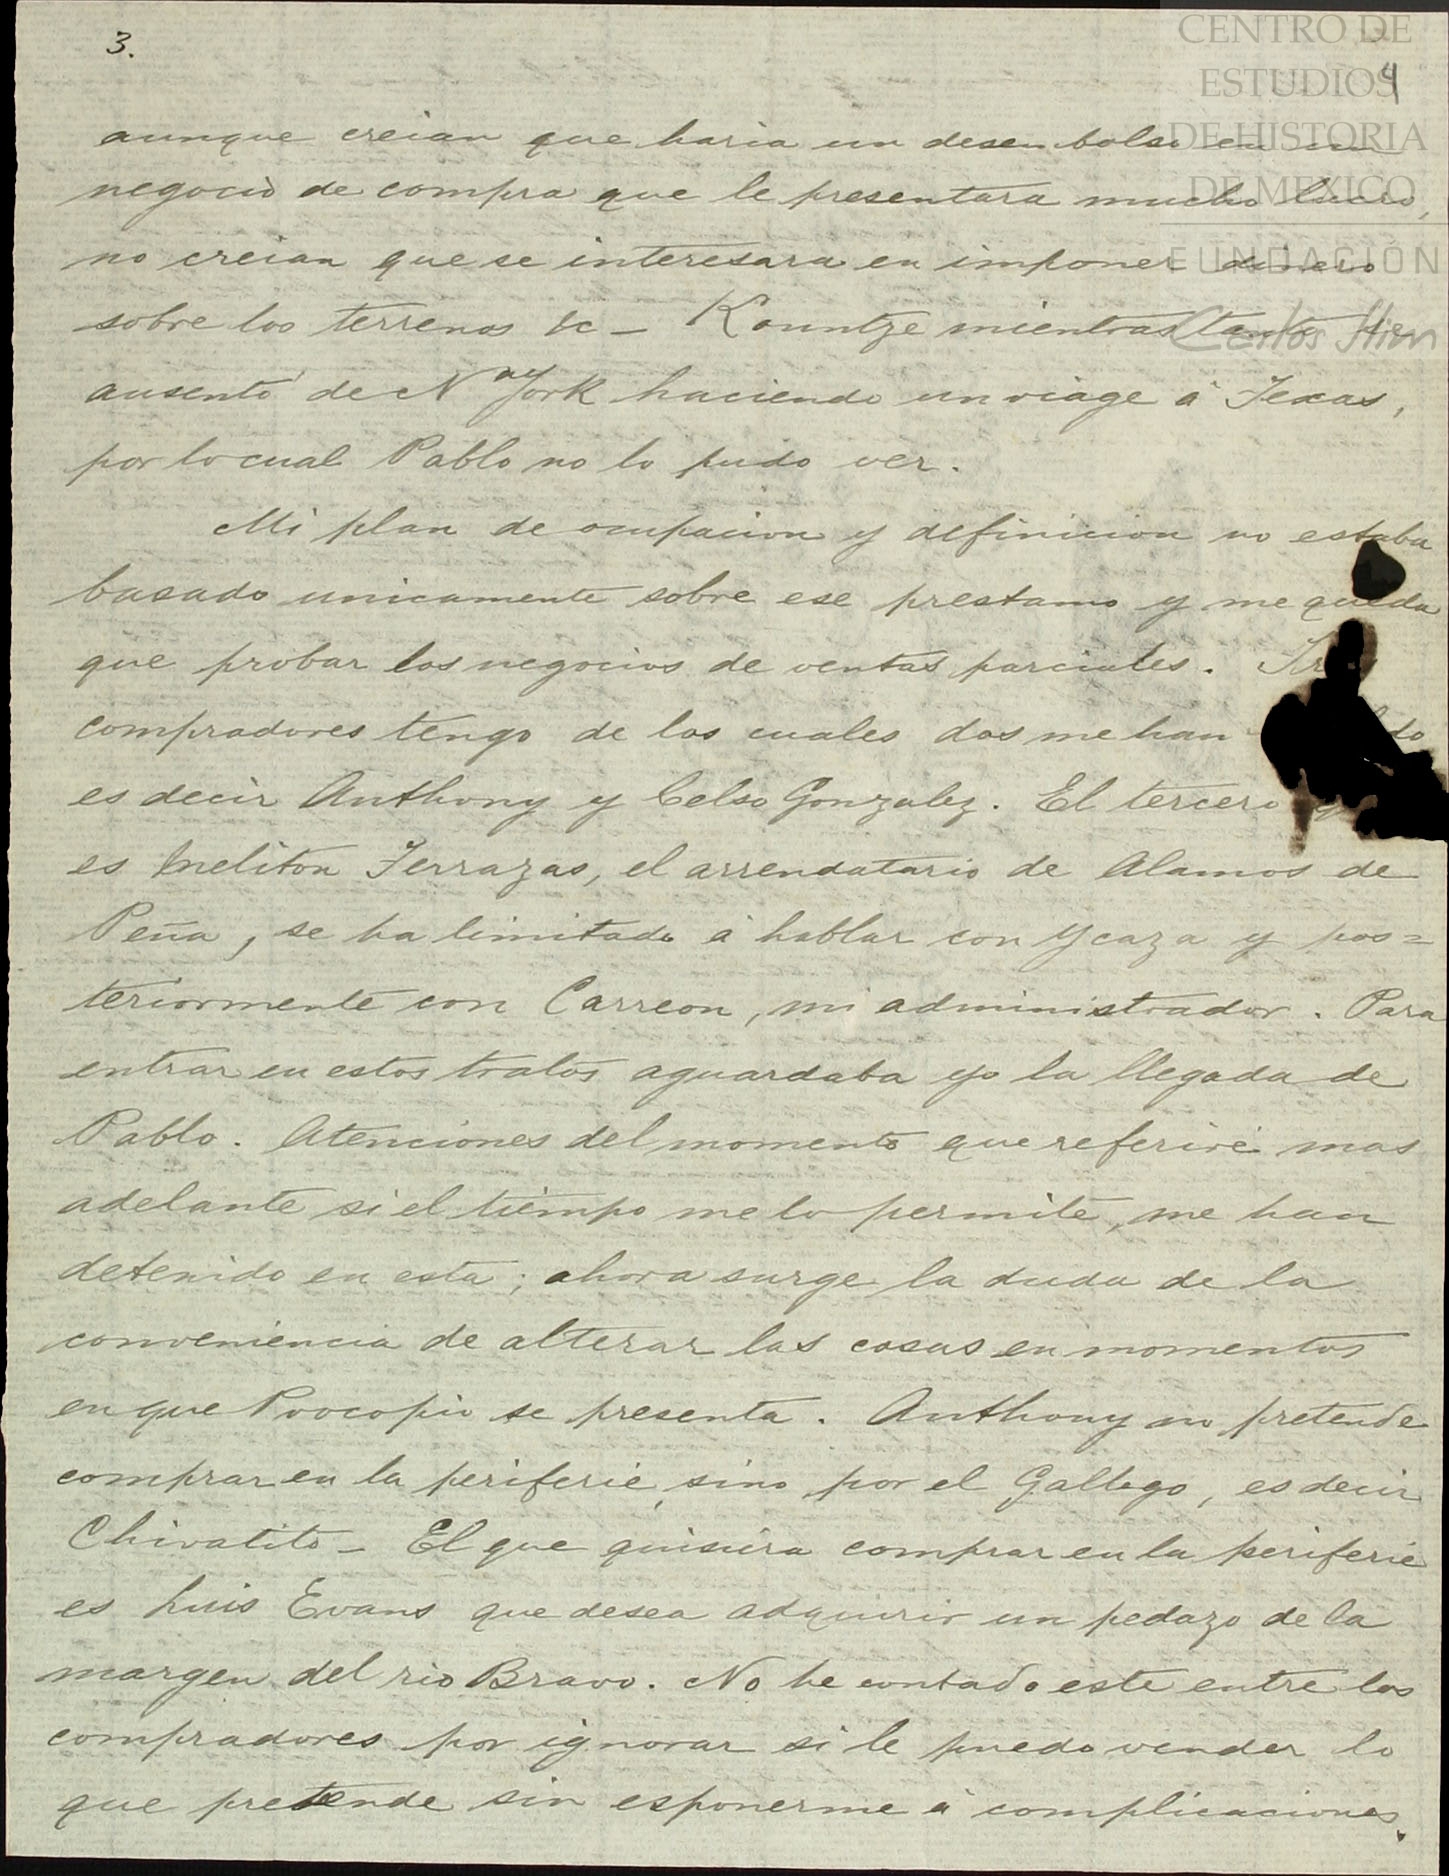 3.
4
CENTRO DE
ESTUDIOS
DE HISTORIA
DE MÉXICO
FUNDACIÓN
Carlos Slim
aunque creian que haria un desembolso en un
negocio de compra que le presentara mucho lucro,
no creian que se interesara en imponer dinero
sobre los terrenos &c – Kountze mientras tanto se
ausentó de N. York haciendo un viage á Texas,
por lo cual Pablo no lo pudo ver.
Mi plan de ocupacion y definicion no estaba
basado unicamente sobre ese prestamo y me queda
que probar los negocios de ventas parciales.
compradores tengo de los cuales dos me han
es decir Anthony y Celso Gonzalez. El tercero
es Meliton Terrazas, el arrendatario de Alamos de
Peña, se ha limitado á hablar con Ycaza y pos=
teriormente con Carreon, mi administrador. Para
entrar en estos tratos aguardaba yo la llegada de
Pablo. Atenciones del momento que referiré mas
adelante si el tiempo me lo permite, me han
detenido en esta; ahora surge la duda de la
conveniencia de alterar las cosas en momentos
en que Procopio se presenta. Anthony no pretende
comprar en la periferie, sino por el Gallego, es decir
Chivatito – El que quisiera comprar en la periferie
es Luis Evans que desea adquirir un pedazo de la
margen del rio Bravo. No he contado este entre los
compradores por ignorar si le puedo vender lo
que pretende sin esponerme á complicaciones.